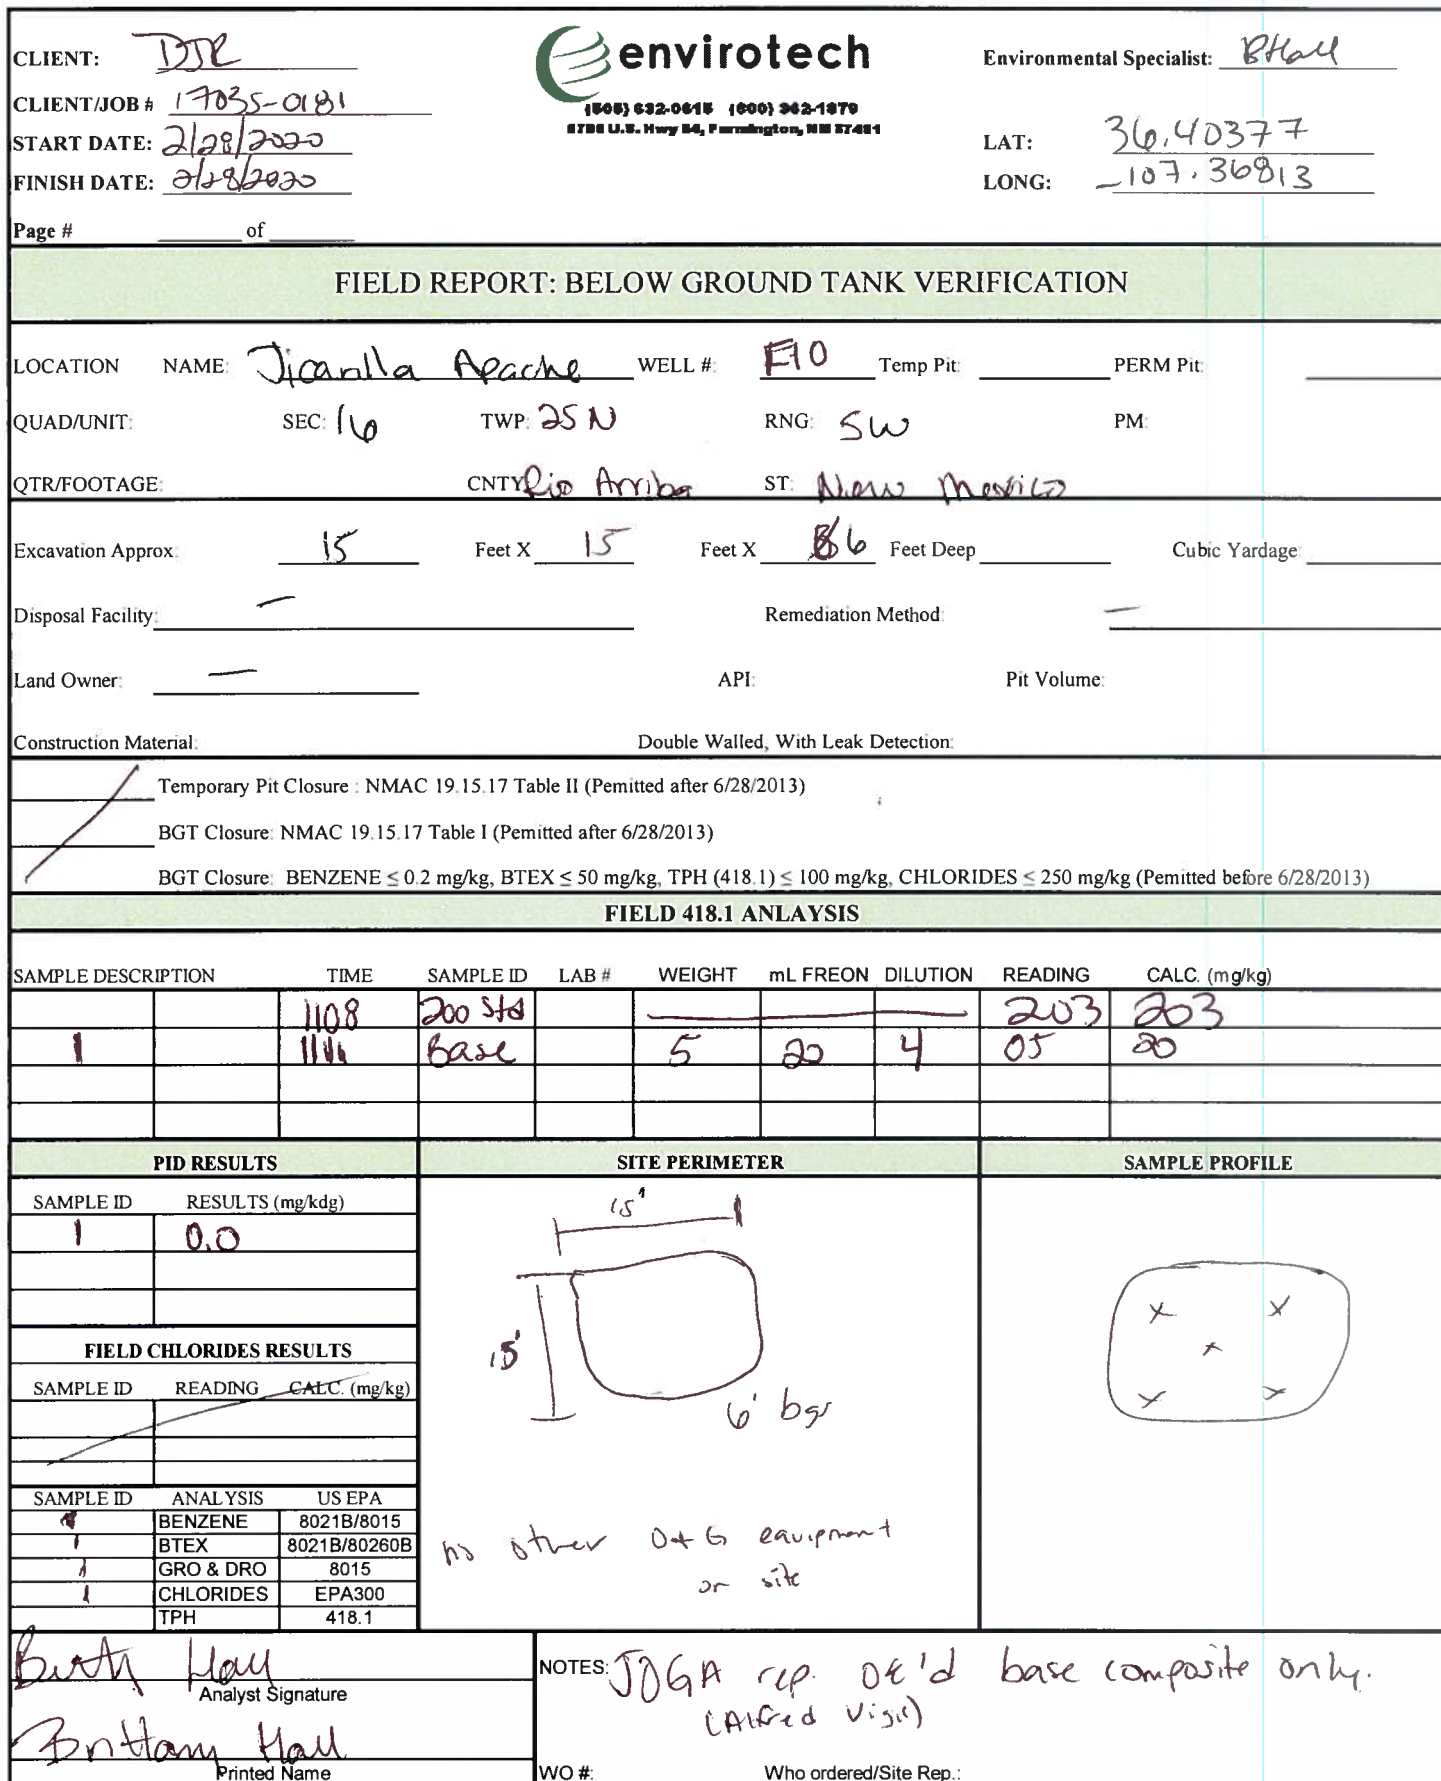 CLIENT: DJR
envirotech
Environmental Specialist: BHall
CLIENT/JOB # 17035-0181
(505) 632-0615 (800) 362-1879
5796 U.S. Hwy 64, Farmington, NM 87401
START DATE: 2/28/2020
LAT: 36.40377
FINISH DATE: 2/28/2020
LONG: -107.36813
Page # of
FIELD REPORT: BELOW GROUND TANK VERIFICATION
LOCATION NAME: Jicarilla Apache WELL #: F10 Temp Pit: PERM Pit:
QUAD/UNIT: SEC: 16 TWP: 25N RNG: 5W PM:
QTR/FOOTAGE: CNTY Rio Arriba ST: New Mexico
Excavation Approx: 15 Feet X 15 Feet X 6 Feet Deep Cubic Yardage:
Disposal Facility: — Remediation Method: —
Land Owner: — API: Pit Volume:
Construction Material: Double Walled, With Leak Detection:
Temporary Pit Closure : NMAC 19.15.17 Table II (Pemitted after 6/28/2013)
BGT Closure: NMAC 19.15.17 Table I (Pemitted after 6/28/2013)
BGT Closure: BENZENE ≤ 0.2 mg/kg, BTEX ≤ 50 mg/kg, TPH (418.1) ≤ 100 mg/kg, CHLORIDES ≤ 250 mg/kg (Pemitted before 6/28/2013)
FIELD 418.1 ANLAYSIS
SAMPLE DESCRIPTION TIME SAMPLE ID LAB # WEIGHT mL FREON DILUTION READING CALC. (mg/kg)
1108 200 Std 203 203
1 Base 5 20 4 05 20
PID RESULTS SITE PERIMETER SAMPLE PROFILE
SAMPLE ID RESULTS (mg/kdg)
1 0.0
15'
15'
6' bgs
x x
x
x x
FIELD CHLORIDES RESULTS
SAMPLE ID READING CALC. (mg/kg)
SAMPLE ID ANALYSIS US EPA
1 BENZENE 8021B/8015
1 BTEX 8021B/80260B
1 GRO & DRO 8015
1 CHLORIDES EPA300
TPH 418.1
no other O+G equipment
on site
Brittany Hall
Analyst Signature
Brittany Hall
Printed Name
NOTES: JOGA rep. OK'd base composite only.
(Alfred Vigil)
WO #: Who ordered/Site Rep.: